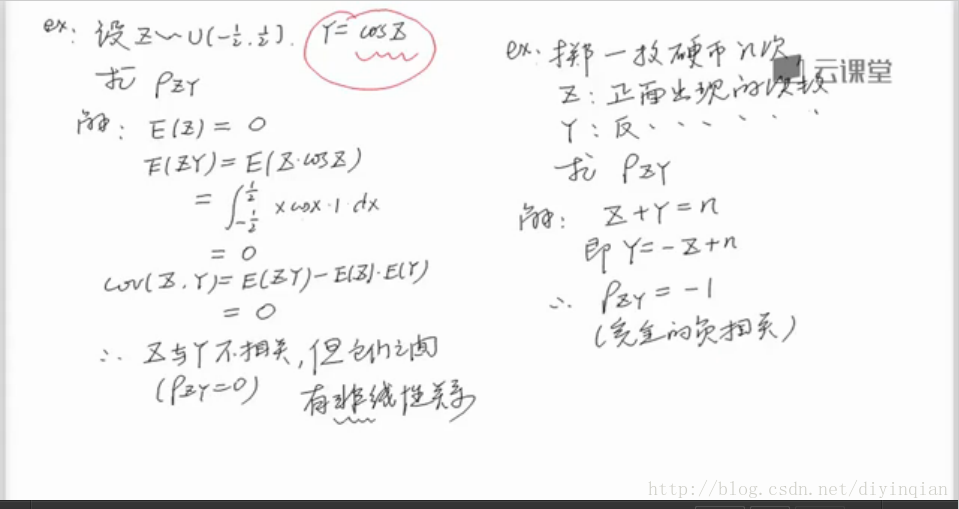 ex: 设 Z~U(-1/2, 1/2). Y=cosZ
求 ρZY
解: E(Z) = 0
E(ZY) = E(Z·cosZ)
= ∫_{-1/2}^{1/2} x cosx·1 dx
= 0
cov(Z,Y) = E(ZY) - E(Z)·E(Y)
= 0
∴ Z与Y不相关,但它们之间
(ρZY=0) 有非线性关系
ex: 掷一枚硬币n次,
云课堂
Z: 正面出现的次数
Y: 反······
求 ρZY
解: Z+Y=n
即 Y=-Z+n
∴ ρZY = -1
(完全的负相关)
http://blog.csdn.net/diyinqian